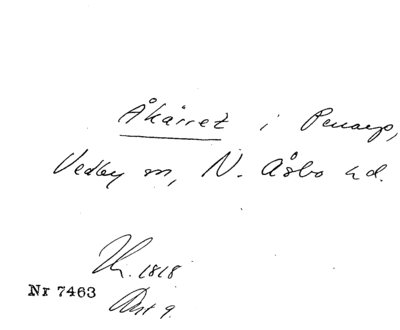 Åkärret i Penarp,
Vedby sn, N. Åsbo hd.
1818
Nr 7463
Akt 9.